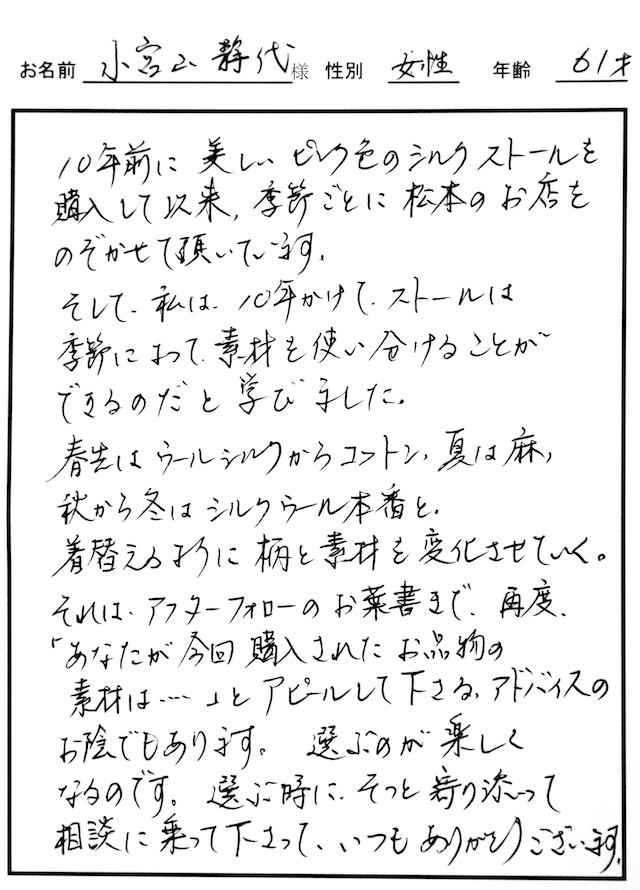 お名前 小宮山 静代 様 性別 女性 年齢 61才
10年前に 美しい ピンク色のシルクストールを
購入して以来、季節ごとに 松本のお店を
のぞかせて頂いています。
そして、私は、10年かけて、ストールは
季節によって、素材を使い分けることが
できるのだと学びました。
春先はウールシルクからコットン、夏は麻、
秋から冬はシルクウール本番と、
着替えるように柄と素材を変化させていく。
それは、アフターフォローのお葉書まで、再度、
「あなたが今回購入されたお品物の
素材は……」とアピールして下さる、アドバイスの
お陰でもあります。 選ぶのが楽しく
なるのです。 選ぶ時に、そっと寄り添って
相談に乗って下さって、いつもありがとうございます。